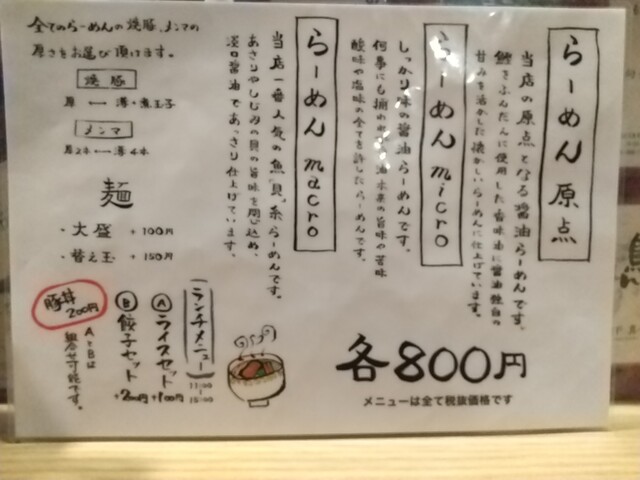 らーめん 原点
当店の原点となる醤油らーめんです。
鰹をふんだんに使用した香味油に醤油独自の
甘みを活かした懐かしいらーめんに仕上げています。
らーめん micro
しっかり味の醤油らーめんです。
何事にも
油本来の旨味や苦味
酸味や塩味の全てを許したらーめんです。
らーめん macro
当店一番人気の魚貝系らーめんです。
あさりやしじみの貝の旨味を閉じ込め、
淡口醤油であっさり仕上げています。
全てのらーめんの焼豚、メンマの
厚さをお選び頂けます。
焼豚
厚 ←→ 薄+煮玉子
メンマ
厚2本 ←→ 薄4本
麺
・大盛 +100円
・替え玉 +150円
ランチメニュー
11:00~15:00
Ⓐライスセット +100円
Ⓑ餃子セット +200円
AとBは
組合せ可能です。
豚丼
200円
各800円
メニューは全て税抜価格です